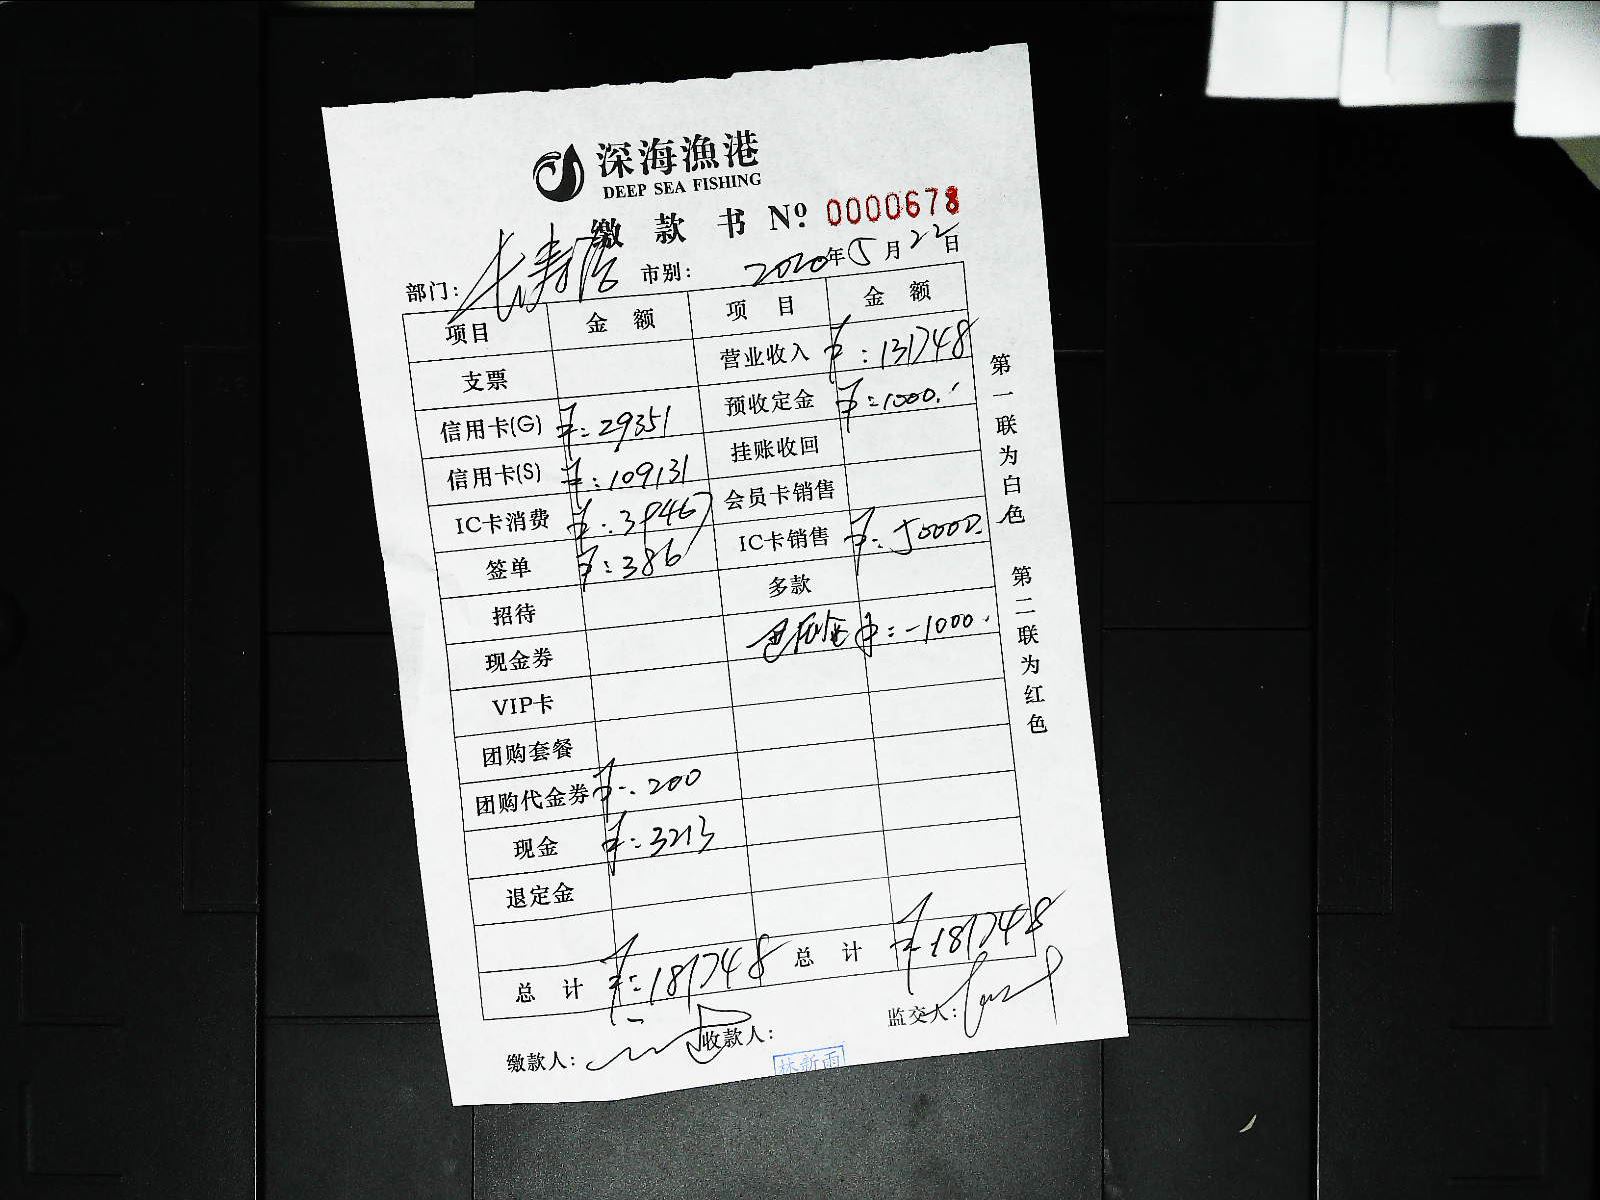 深海漁港
DEEP SEA FISHING
缴款书 Nº: 0000678
部门: 长寿 市别: 2020年5月22日
项目 金额 项目 金额
支票 营业收入 ¥:131748
信用卡(G) ¥:29351 预收定金 ¥:1000.
信用卡(S) ¥:109131 挂账收回
IC卡消费 ¥:39467 会员卡销售
签单 ¥:386 IC卡销售 ¥:50000.
招待 多款
现金券 ¥:-1000.
VIP卡
团购套餐
团购代金券 ¥:200
现金 ¥:3213
退定金
总计 ¥:181748 总计 ¥:181748
缴款人: 收款人: 监交人:
林新雨
第一联为白色
第二联为红色